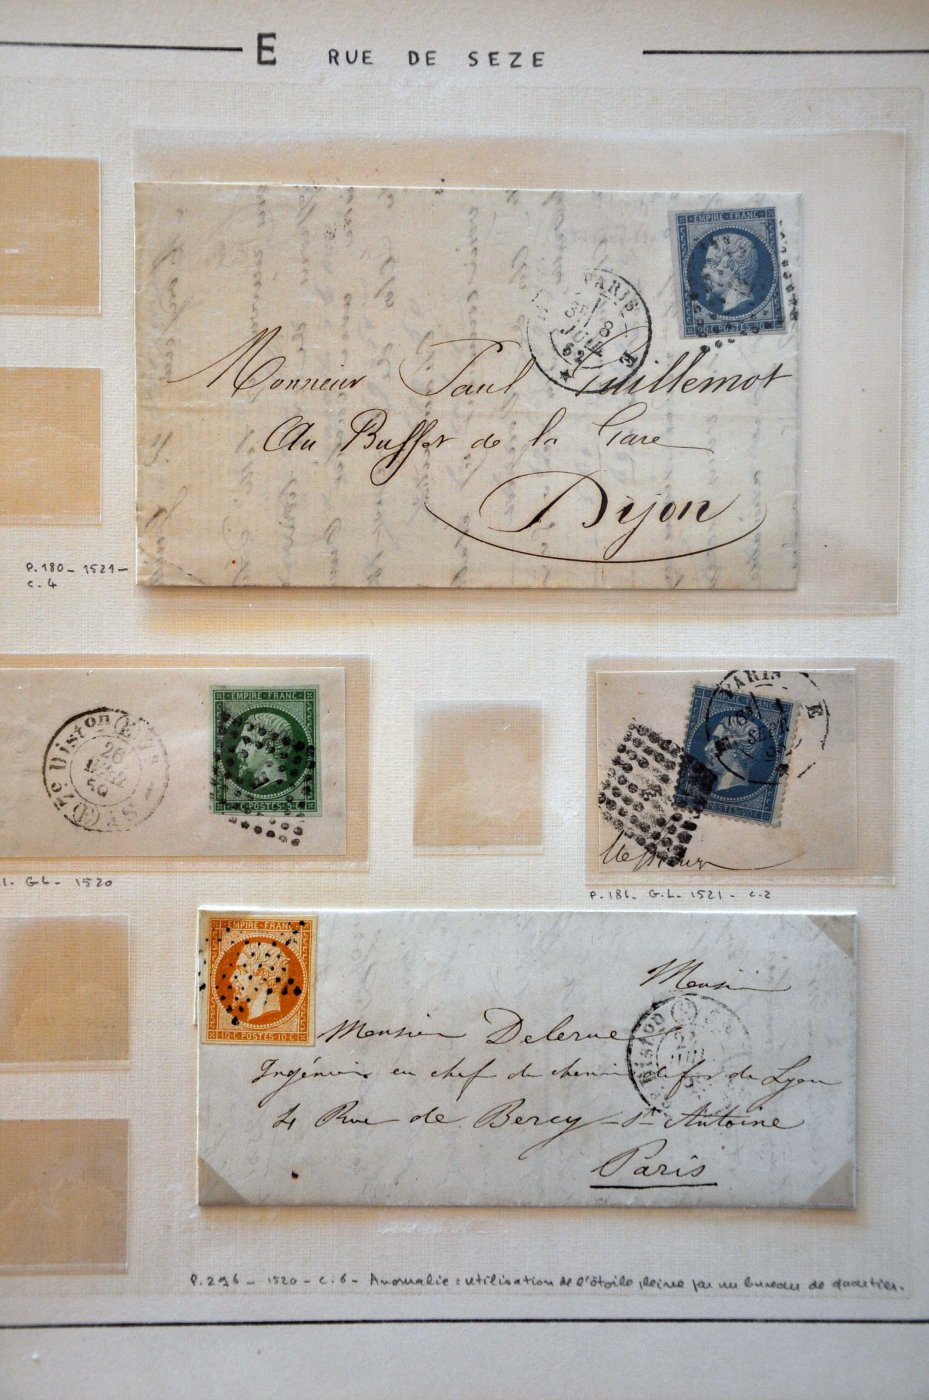 E RUE DE SEZE
EMPIRE FRANC
PARIS
8
JUIL
62
E
Monsieur Paul Guillemot
Au Buffet de la Gare
Dijon
P. 180 - 1521 -
C. 4
Diston (E)
26
59
EMPIRE FRANC
5 C POSTES 5 C
PARIS
E
Messieurs
G.L - 1520
P. 181. G.L. 1521 - C. 2
EMPIRE FRANC
10 C POSTES 10 C
Monsieur
Monsieur Delerue
Ingénieur en chef du chemin de fer de Lyon
4 Rue de Bercy - St Antoine
Paris
P. 296 - 1520 - C. 6 - Anomalie : utilisation de l'étoile pleine par un bureau de quartier.